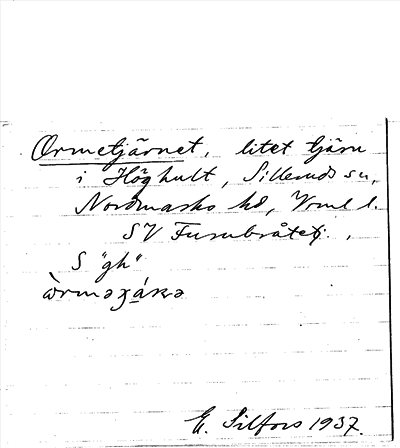 Ormetjärnet, litet tjärn
i Höghult, Silleruds sn,
Nordmarks hd, Vrml l.
SV Furubråtetj.,
S "gh"
E. Silfors 1937